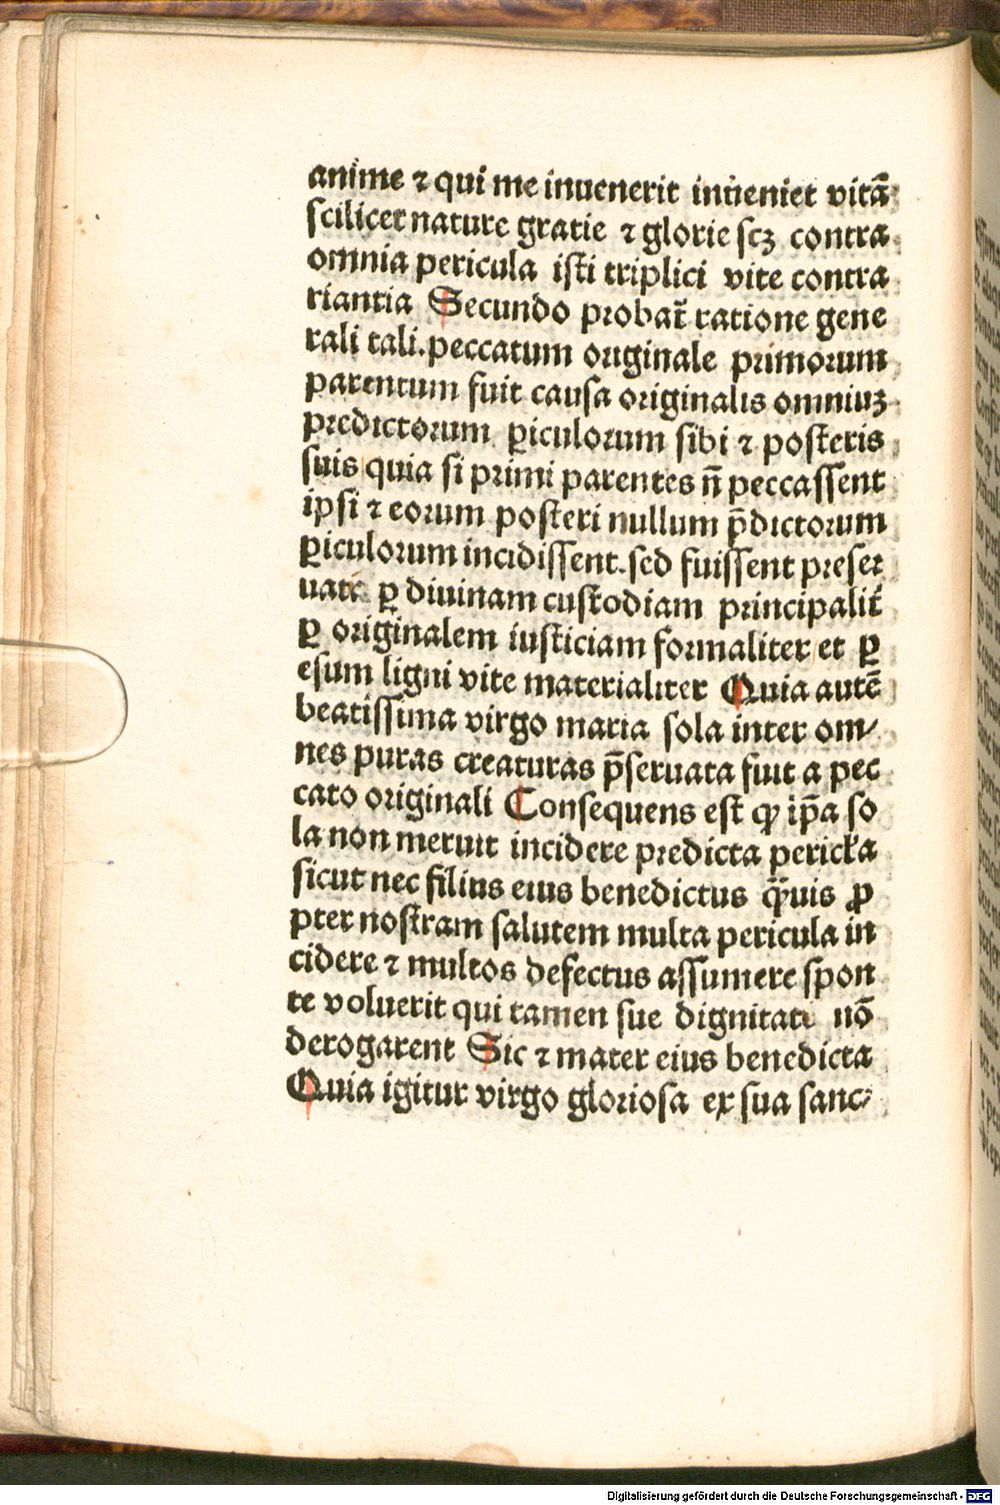 anime ⁊ qui me inuenerit inueniet vitã
scilicet nature gratie ⁊ glorie scꝫ contra
omnia pericula isti triplici vite contra
riantia Secundo probat̃ ratione gene
rali tali.peccatum originale primorum
parentum fuit causa originalis omniuꝫ
predictorum ꝑiculorum sibi ⁊ posteris
suis quia si primi parentes ñ peccassent
ipsi ⁊ eorum posteri nullum p̃dictorum
ꝑiculorum incidissent.sed fuissent preser
uati ꝑ diuinam custodiam principalit̃
ꝑ originalem iusticiam formaliter et ꝑ
esum ligni vite materialiter Quia autẽ
beatissima virgo maria sola inter om⸗
nes puras creaturas p̃seruata fuit a pec
cato originali Consequens est ꝙ ip̃a so
la non meruit incidere predicta pericl̃a
sicut nec filius eius benedictus q̃uis ꝓ
pter nostram salutem multa pericula in
cidere ⁊ multos defectus assumere spon
te voluerit qui tamen sue dignitati nõ
derogarent Sic ⁊ mater eius benedicta
Quia igitur virgo gloriosa ex sua sanc⸗
Digitalisierung gefördert durch die Deutsche Forschungsgemeinschaft - DFG